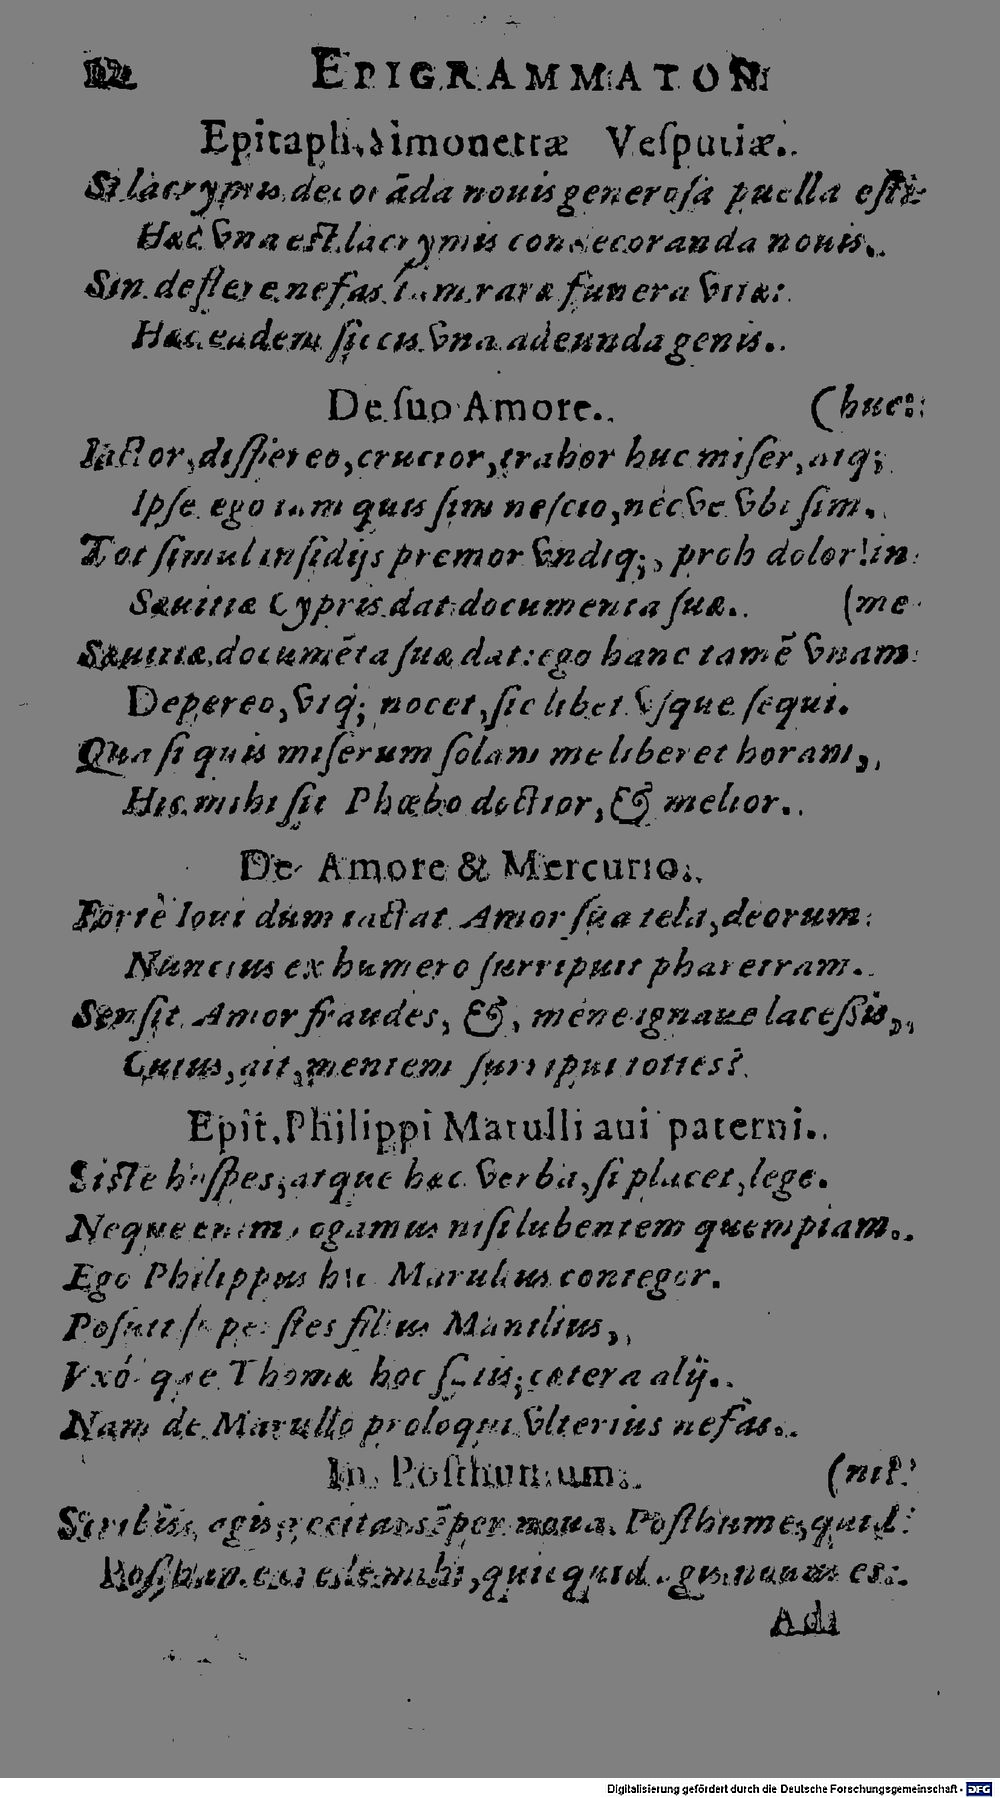 12 EPIGRAMMATON
Epitaph. Simonettæ Veſputiæ.
Si lacrymis decorāda nouis generoſa puella eſt:
Hæc vna eſt lacrymis condecoranda nouis.
Sin deflere nefas tam raræ funera vitæ:
Hæc eadem ſiccis vna adeunda genis.
De ſuo Amore. (huc:
Iactor, diſpereo, crucior, trahor huc miſer, atq;
Ipſe ego iam quis ſim neſcio, nec ve vbi ſim.
Tot ſimul inſidijs premor vndiq;, proh dolor! in
Sæuitiæ Cypris dat documenta ſuæ. (me
Sæuitiæ documēta ſuæ dat: ego hanc tamē vnam
Depereo, vtq; nocet, ſic libet vſque ſequi.
Qua ſi quis miſerum ſolam me liberet horam,
His mihi ſit Phœbo doctior, & melior.
De Amore & Mercurio.
Fortè Ioui dum iactat Amor ſua tela, deorum
Nuncius ex humero ſurripuit pharetram.
Senſit Amor fraudes, &, méne ignaue laceſſis,
Cuius, ait, mentem ſurripui toties?
Epit. Philippi Marulli aui paterni.
Siſte hoſpes, atque hæc verba, ſi placet, lege.
Neque enim rogamus niſi lubentem quempiam.
Ego Philippus hic Marulius contegor.
Poſuit ſuperſtes filius Manilius,
Vxórque Thomæ hoc ſcitis; cætera alij.
Nam de Marullo proloqui vlterius nefas.
In Poſthumum. (nil!
Scribis, agis, recitas sēper noua, Poſthume, quid
Poſthume eſt mihi, quicquid agis nouum es.
Ada
Digitalisierung gefördert durch die Deutsche Forschungsgemeinschaft - DFG